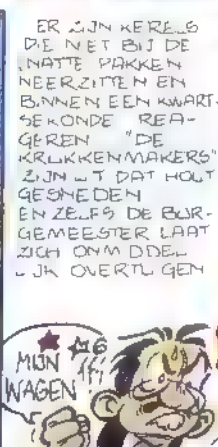 ER ZIJN KERELS
DIE NET BIJ DE
NATTE PAKKEN
NEERZITTEN EN
BINNEN EEN KWART-
SEKONDE REA-
GEREN "DE
KRUKKENMAKERS"
ZIJN UIT DAT HOUT
GESNEDEN
EN ZELFS DE BUR-
GEMEESTER LAAT
ZICH ONMIDDEL-
LIJK OVERTUIGEN
MIJN
WAGEN